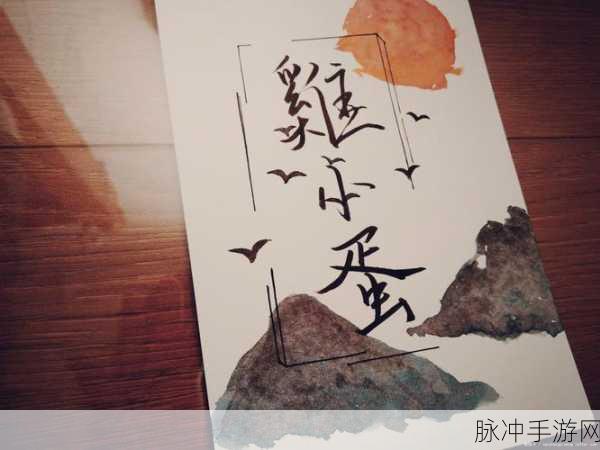 雞小蛋
脉冲手游网